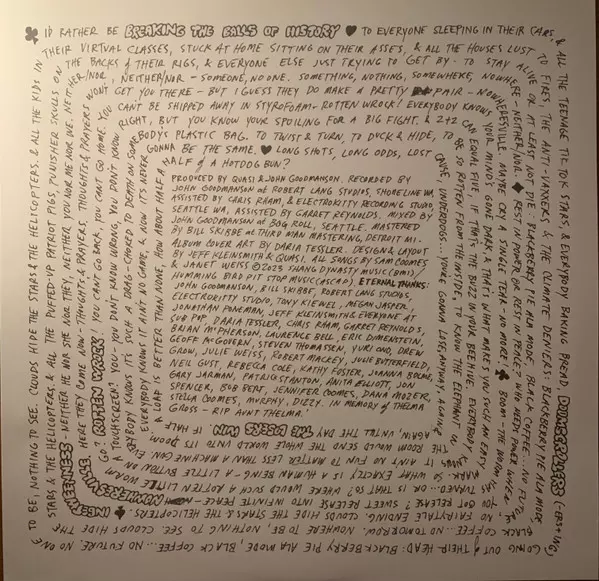 I'D RATHER BE BREAKING THE BALLS OF HISTORY ♥ TO EVERYONE SLEEPING IN THEIR CARS,
& ALL THE TEENAGE TIK TOK STARS, & EVERYBODY BAKING BREAD, DOOMSCROLLERS
GOING OUT OF THEIR HEAD. BLACKBERRY PIE ALA MODE, BLACK COFFEE... NO FUTURE. NO ONE
TO BE, NOTHING TO SEE. CLOUDS HIDE THE STARS & THE HELICOPTERS. & ALL THE KIDS IN
THEIR VIRTUAL CLASSES, STUCK AT HOME SITTING ON THEIR ASSES, & ALL THE HOUSES LOST
TO FIRES, THE ANTI-VAXXERS & THE CLIMATE DENIERS. BLACKBERRY PIE ALA MODE
BLACK COFFEE... NO TOMORROW. NOWHERE TO BE, NOTHING TO SEE CLOUDS HIDE THE
STARS & THE HELICOPTERS, & ALL THE PUFFED-UP PATRIOT PIGS, PUNISHER SKULLS ON
THE BACKS OF THEIR RIGS, & EVERYONE ELSE JUST TRYING TO GET BY - TO STAY
ALIVE OR AT LEAST NOT DIE. BLACKBERRY PIE ALA MODE, BLACK COFFEE... NO FUTURE
NO FAIRYTALE ENDING. CLOUDS HIDE THE STARS & THE HELICOPTERS.
INBETWEENNESS - NEITHER HE NOR SHE NOR THEY, NEITHER YOU NOR ME NOR WE. NEITHER/NOR,
NEITHER/NOR - SOMEONE, NO ONE. SOMETHING, NOTHING, SOMEWHERE, NOWHERE
- NEITHER/NOR.
REST IN POWER OR REST IN PEACE? WHO NEEDS POWER WHEN
YOU GOT RELEASE? SWEET RELEASE INTO INFINITE PEACE
HERE THEY COME NOW - THOUGHTS & PRAYERS, THOUGHTS & PRAYERS
WON'T GET YOU THERE - BUT I GUESS THEY DO MAKE A PRETTY PAIR - NOWHERESVILLE.
MAYBE CRY A SINGLE TEAR - NO MORE!
BOOM - THE WORM
TURNED - OR IS THAT SO? WHERE WOULD SUCH A ROTTEN LITTLE WORM
GO?
ROTTEN WROCK
YOU CAN'T GO BACK, YOU CAN'T GO HOME
YOU CAN'T BE SHIPPED AWAY IN STYROFOAM - ROTTEN WROCK! EVERYBODY KNOWS
YOUR MIND'S GONE DARK & THAT'S WHAT MAKES YOU SUCH AN EASY
MARK. SO WHAT EXACTLY IS A HUMAN BEING - A LITTLE BUTTON ON
A TOUCHSCREEN? YOU - YOU DON'T KNOW WRONG, YOU DON'T KNOW
RIGHT, BUT YOU KNOW YOUR SPOILING FOR A BIG FIGHT. & 2+2
CAN EQUAL FIVE, IF THAT'S THE BUZZ IN YOUR BEEHIVE. EVERYBODY
KNOWS IT AIN'T NO FUN TO MATTER LESS THAN A MACHINE GUN.
EVERYBODY KNOWS IT'S SUCH A DRAG - CHOKED TO DEATH ON SOMEBODY'S PLASTIC BAG. TO TWIST & TURN, TO DUCK & HIDE,
TO BE SO ROTTEN FROM THE INSIDE, TO KNOW THE ELEPHANT IN
THE ROOM WOULD SEND THE WHOLE WORLD INTO ITS DOOM
EVERYBODY KNOWS IT AIN'T NO GAME, & NOW IT'S NEVER
GONNA BE THE SAME. ♥ LONG SHOTS, LONG ODDS, LOST
CAUSE, UNDERDOGS... YOU'RE GONNA LOSE, ANYWAY, AGAIN &
AGAIN, UNTIL THE DAY THE LOSERS WIN
IF HALF
A LOAF IS BETTER THAN NONE, HOW ABOUT HALF A
HALF OF A HOTDOG BUN?
PRODUCED BY QUASI & JOHN GOODMANSON. RECORDED BY
JOHN GOODMANSON AT ROBERT LANG STUDIOS, SHORELINE WA,
ASSISTED BY CHRIS RAAM, & ELECTROKITTY RECORDING STUDIO,
SEATTLE WA, ASSISTED BY GARRET REYNOLDS. MIXED BY
JOHN GOODMANSON AT BOG ROLL, SEATTLE. MASTERED
BY BILL SKIBBE AT THIRD MAN MASTERING, DETROIT MI.
ALBUM COVER ART BY DARIA TESSLER. DESIGN & LAYOUT
BY JEFF KLEINSMITH & QUASI. ALL SONGS BY SAM COOMES
& JANET WEISS ©2023 SHANG DYNASTY MUSIC (BMI)/
HUMMING BIRD PIT STOP MUSIC (ASCAP). ETERNAL THANKS:
JOHN GOODMANSON, BILL SKIBBE, ROBERT LANG STUDIOS,
ELECTROKITTY STUDIO, TONY KIEWEL, MEGAN JASPER,
JONATHAN PONEMAN, JEFF KLEINSMITH & EVERYONE AT
SUB POP, DARIA TESSLER, CHRIS RAAM, GARRET REYNOLDS,
BRIAN MCPHERSON, LAURENCE BELL, ERIC DIMENSTEIN,
GEOFF MCGOVERN, STEVEN THOMASSEN, YURI ONO, DREW
GROW, JULIE WEISS, ROBERT MACKEY, JULIE BUTTERFIELD,
NEIL GUST, REBECCA COLE, KATHY FOSTER, JOANNA BOLME,
GARY JARMAN, PATRICK STANTON, ANITA ELLIOTT, JON
SPENCER, BOB BERT, JENNIFER COOMES, DANA MOZER,
STELLA COOMES, MURPHY, DIZZY. IN MEMORY OF THELMA
GROSS - RIP AUNT THELMA!